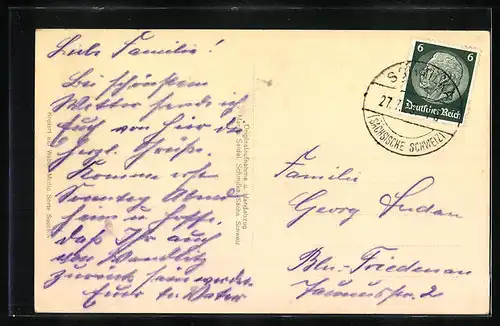 Liebe Familie!
Bei schönstem
Wetter sende ich
Euch von hier die
herzl. Grüße.
Komme erst
Sonntag Abend
heim u. hoffe,
daß Ihr auch
von Wandlitz
zurück sein werdet.
Euer tr. Vater
Originalaufnahme u. Handabzug
Seidel, Schmilka, Sächs. Schweiz
6 6
Deutsches Reich
27.7.
(SÄCHSISCHE SCHWEIZ)
Familie
Georg
Bln.-Friedenau
Taunusstr. 2